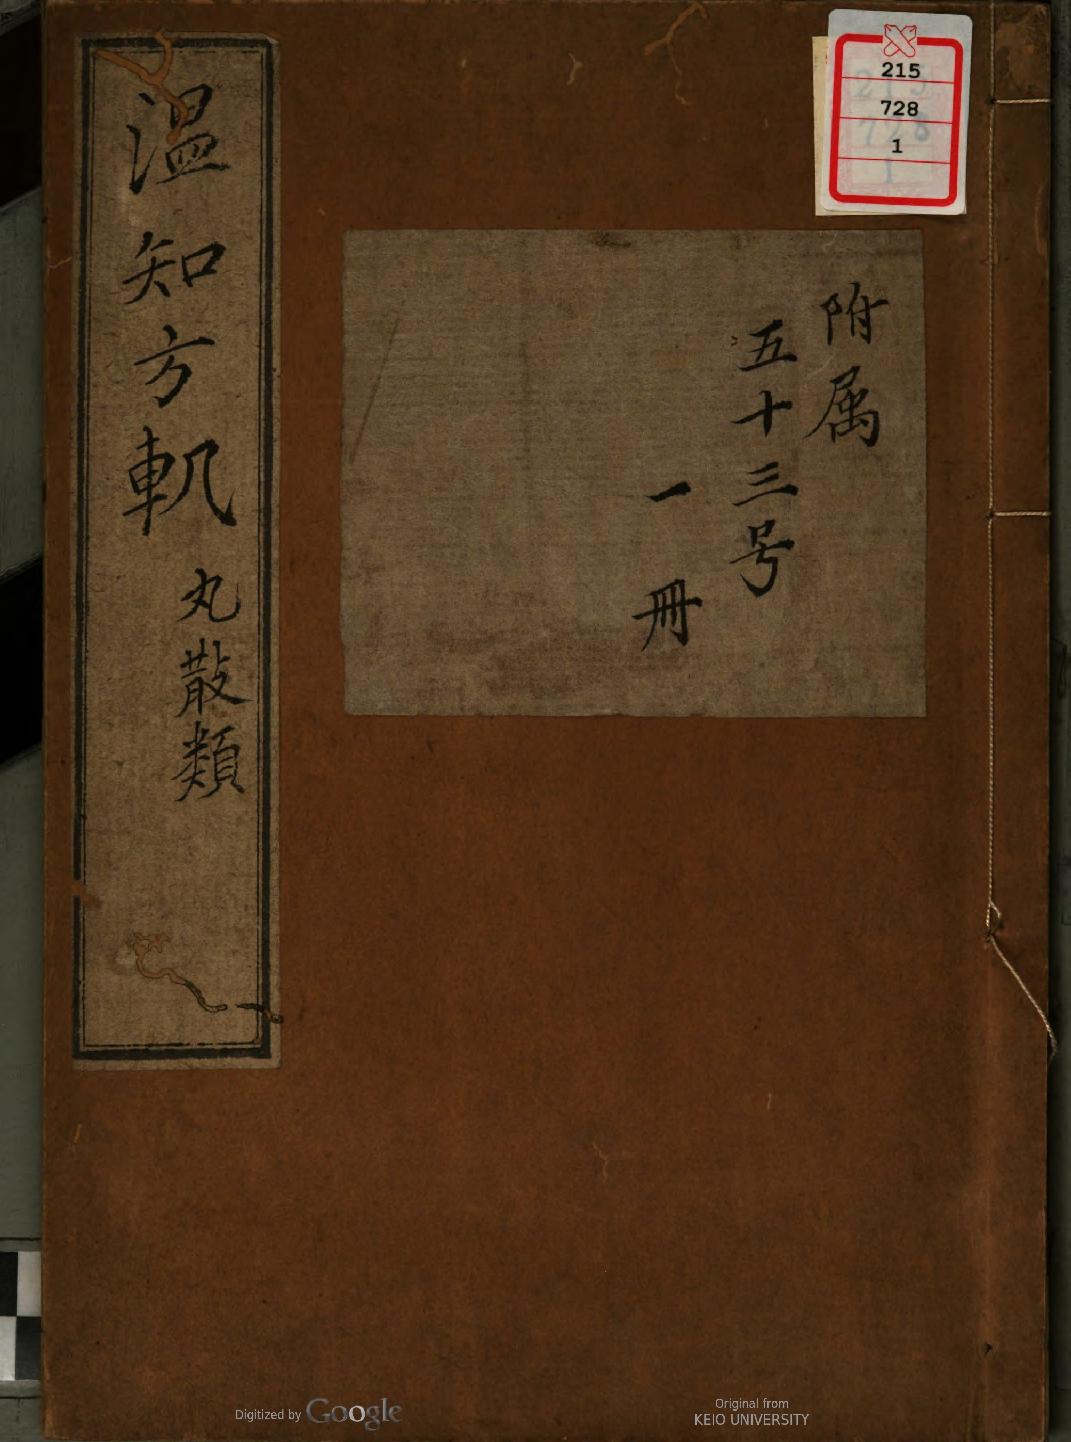 215
728
1
附属
五十三号
一冊
温知方軌 丸散類
Digitized by Google
Original from
KEIO UNIVERSITY